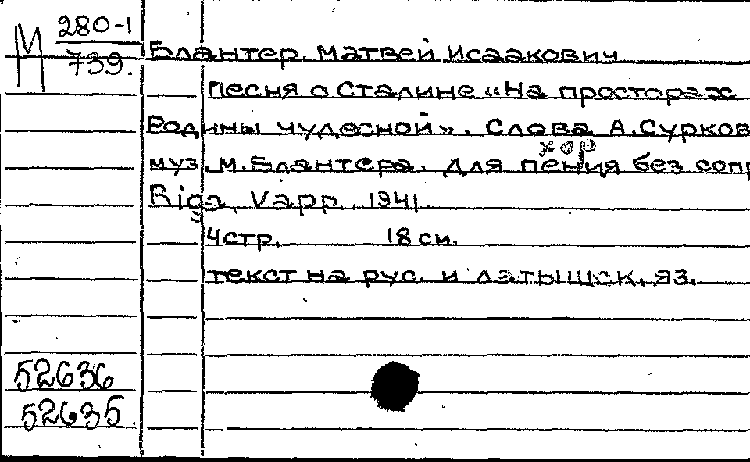 М 280-1
739.
Блантер, Матвей Исаакович
Песня о Сталине «На просторах
Родины чудесной». Слова А.Сурков
хор
муз. М.Блантера. Для пения без сопр
Rīga, Vapp, 1941.
4стр. 18 см.
текст на рус. и латышск. яз.
52636
52635